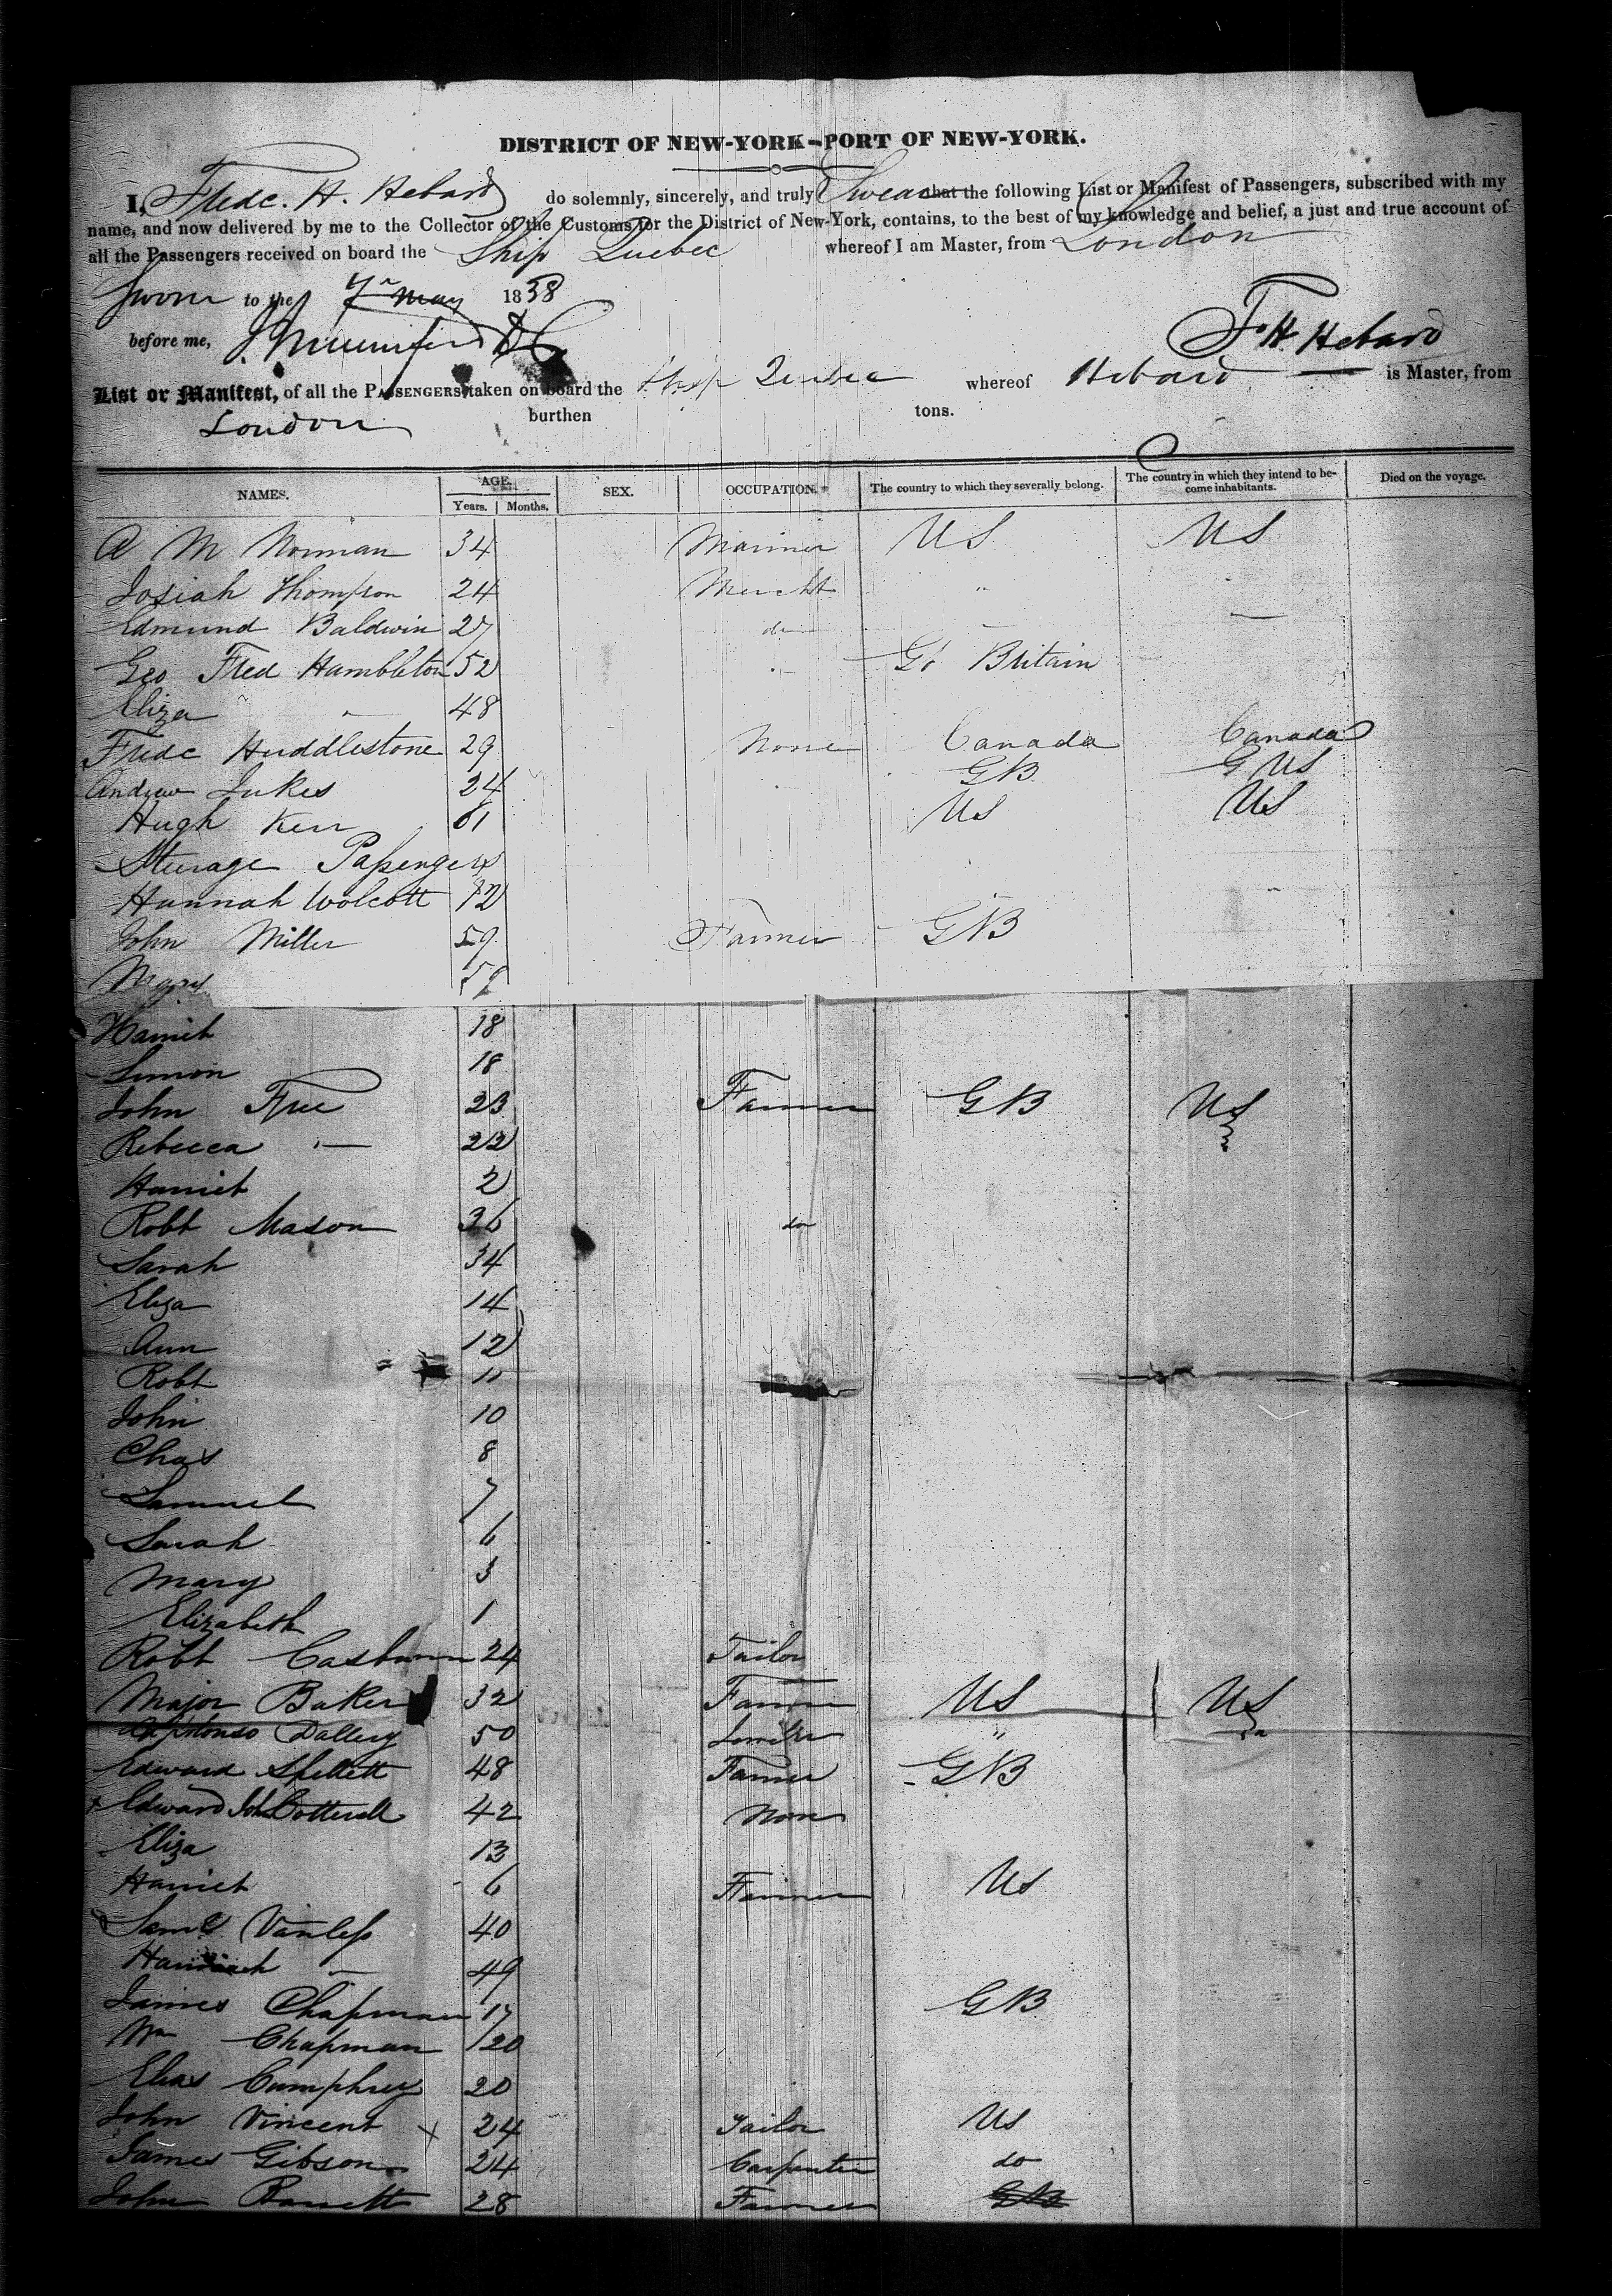 DISTRICT OF NEW-YORK—PORT OF NEW-YORK.
I, Fredc. H. Hebard do solemnly, sincerely, and truly Swear that the following List or Manifest of Passengers, subscribed with my
name, and now delivered by me to the Collector of the Customs for the District of New-York, contains, to the best of my knowledge and belief, a just and true account of
all the Passengers received on board the Ship Quebec whereof I am Master, from London
Sworn to the 7th May 1838
before me, F. H. Hebard
List or Manifest, of all the PASSENGERS taken on board the Ship Quebec whereof Hebard is Master, from
London burthen tons.
NAMES. AGE. SEX. OCCUPATION. The country to which they severally belong. The country in which they intend to be- Died on the voyage.
Years. Months. come inhabitants.
A M Norman 34 Mariner US US
Josiah Thompson 24 Mercht "
Edmund Baldwin 27 do
Geo Fred Hambleton 52 Gt Britain
Eliza — 48
Fredc Huddlestone 29 None Canada Canada
Andrew Jukes 24 GB G US
Hugh Kerr 61 US US
Steerage Passengers
Hannah Wolcott 12
John Miller 59 Farmer GB
Harriet 18
Simon 18
John Free 23 Farmer GB US
Rebecca — 22
Harriet 2
Robt Mason 36 do
Sarah 34
Eliza 14
Ann 12
Robt 11
John 10
Chas 8
Samuel 7
Sarah 6
Mary 3
Elizabeth 1
Robt 24 Tailor
Major Baker 32 Farmer US US
Alphonso Dallery 50 "
Edward Spellett 48 Farmer GB
Edward Jon Cotterell 42 None
Eliza 13
Harriet 6 Farmer US
Saml Vanless 40
Hannah — 49
James Chapman 17 GB
Wm Chapman 20
Elias Cumphrey 20
John Vincent x 24 Tailor US
James Gibson 24 Carpenter do
John Barrett 28 Farmer GB